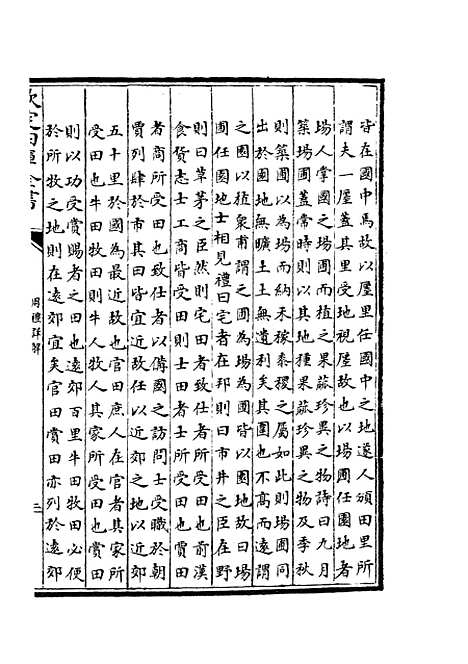 皆在國中焉故以廛里任國中之地遂人頒田里所
謂夫一廛蓋其里受地視廛故也以場圃任園地者
場人掌國之場圃而植之果蓏珍異之物詩曰九月
築場圃蓋常時則以其地種果蓏珍異之物及季秋
則築圃以為場而納禾稼黍稷之屬如此則場圃同
出於園地無曠土土無遺利矣其園也不髙而遠謂
之園以植衆甫謂之圃為場為圃皆以園地故曰場
圃任園地士相見禮曰宅者在邦則曰市井之臣在野
則曰草茅之臣然則宅田者致仕者所受田也前漢
食貨志士工商皆受田則士田者士所受田也賈田
者商所受田也致仕以備國之訪問士受職於朝
賈列肆於市其曰皆宜近故任以近郊之地以近郊
五十里於國為最近故也官田庶人在官者其家所
受田也牛田牧田則牛人牧人其家所受田也賞田
則以功受賞賜者之田也遠郊百里牛田牧田必便
於所牧之地則在遠郊宜矣官田賞田亦列於遠郊
欽定四庫全書
周禮詳解
三